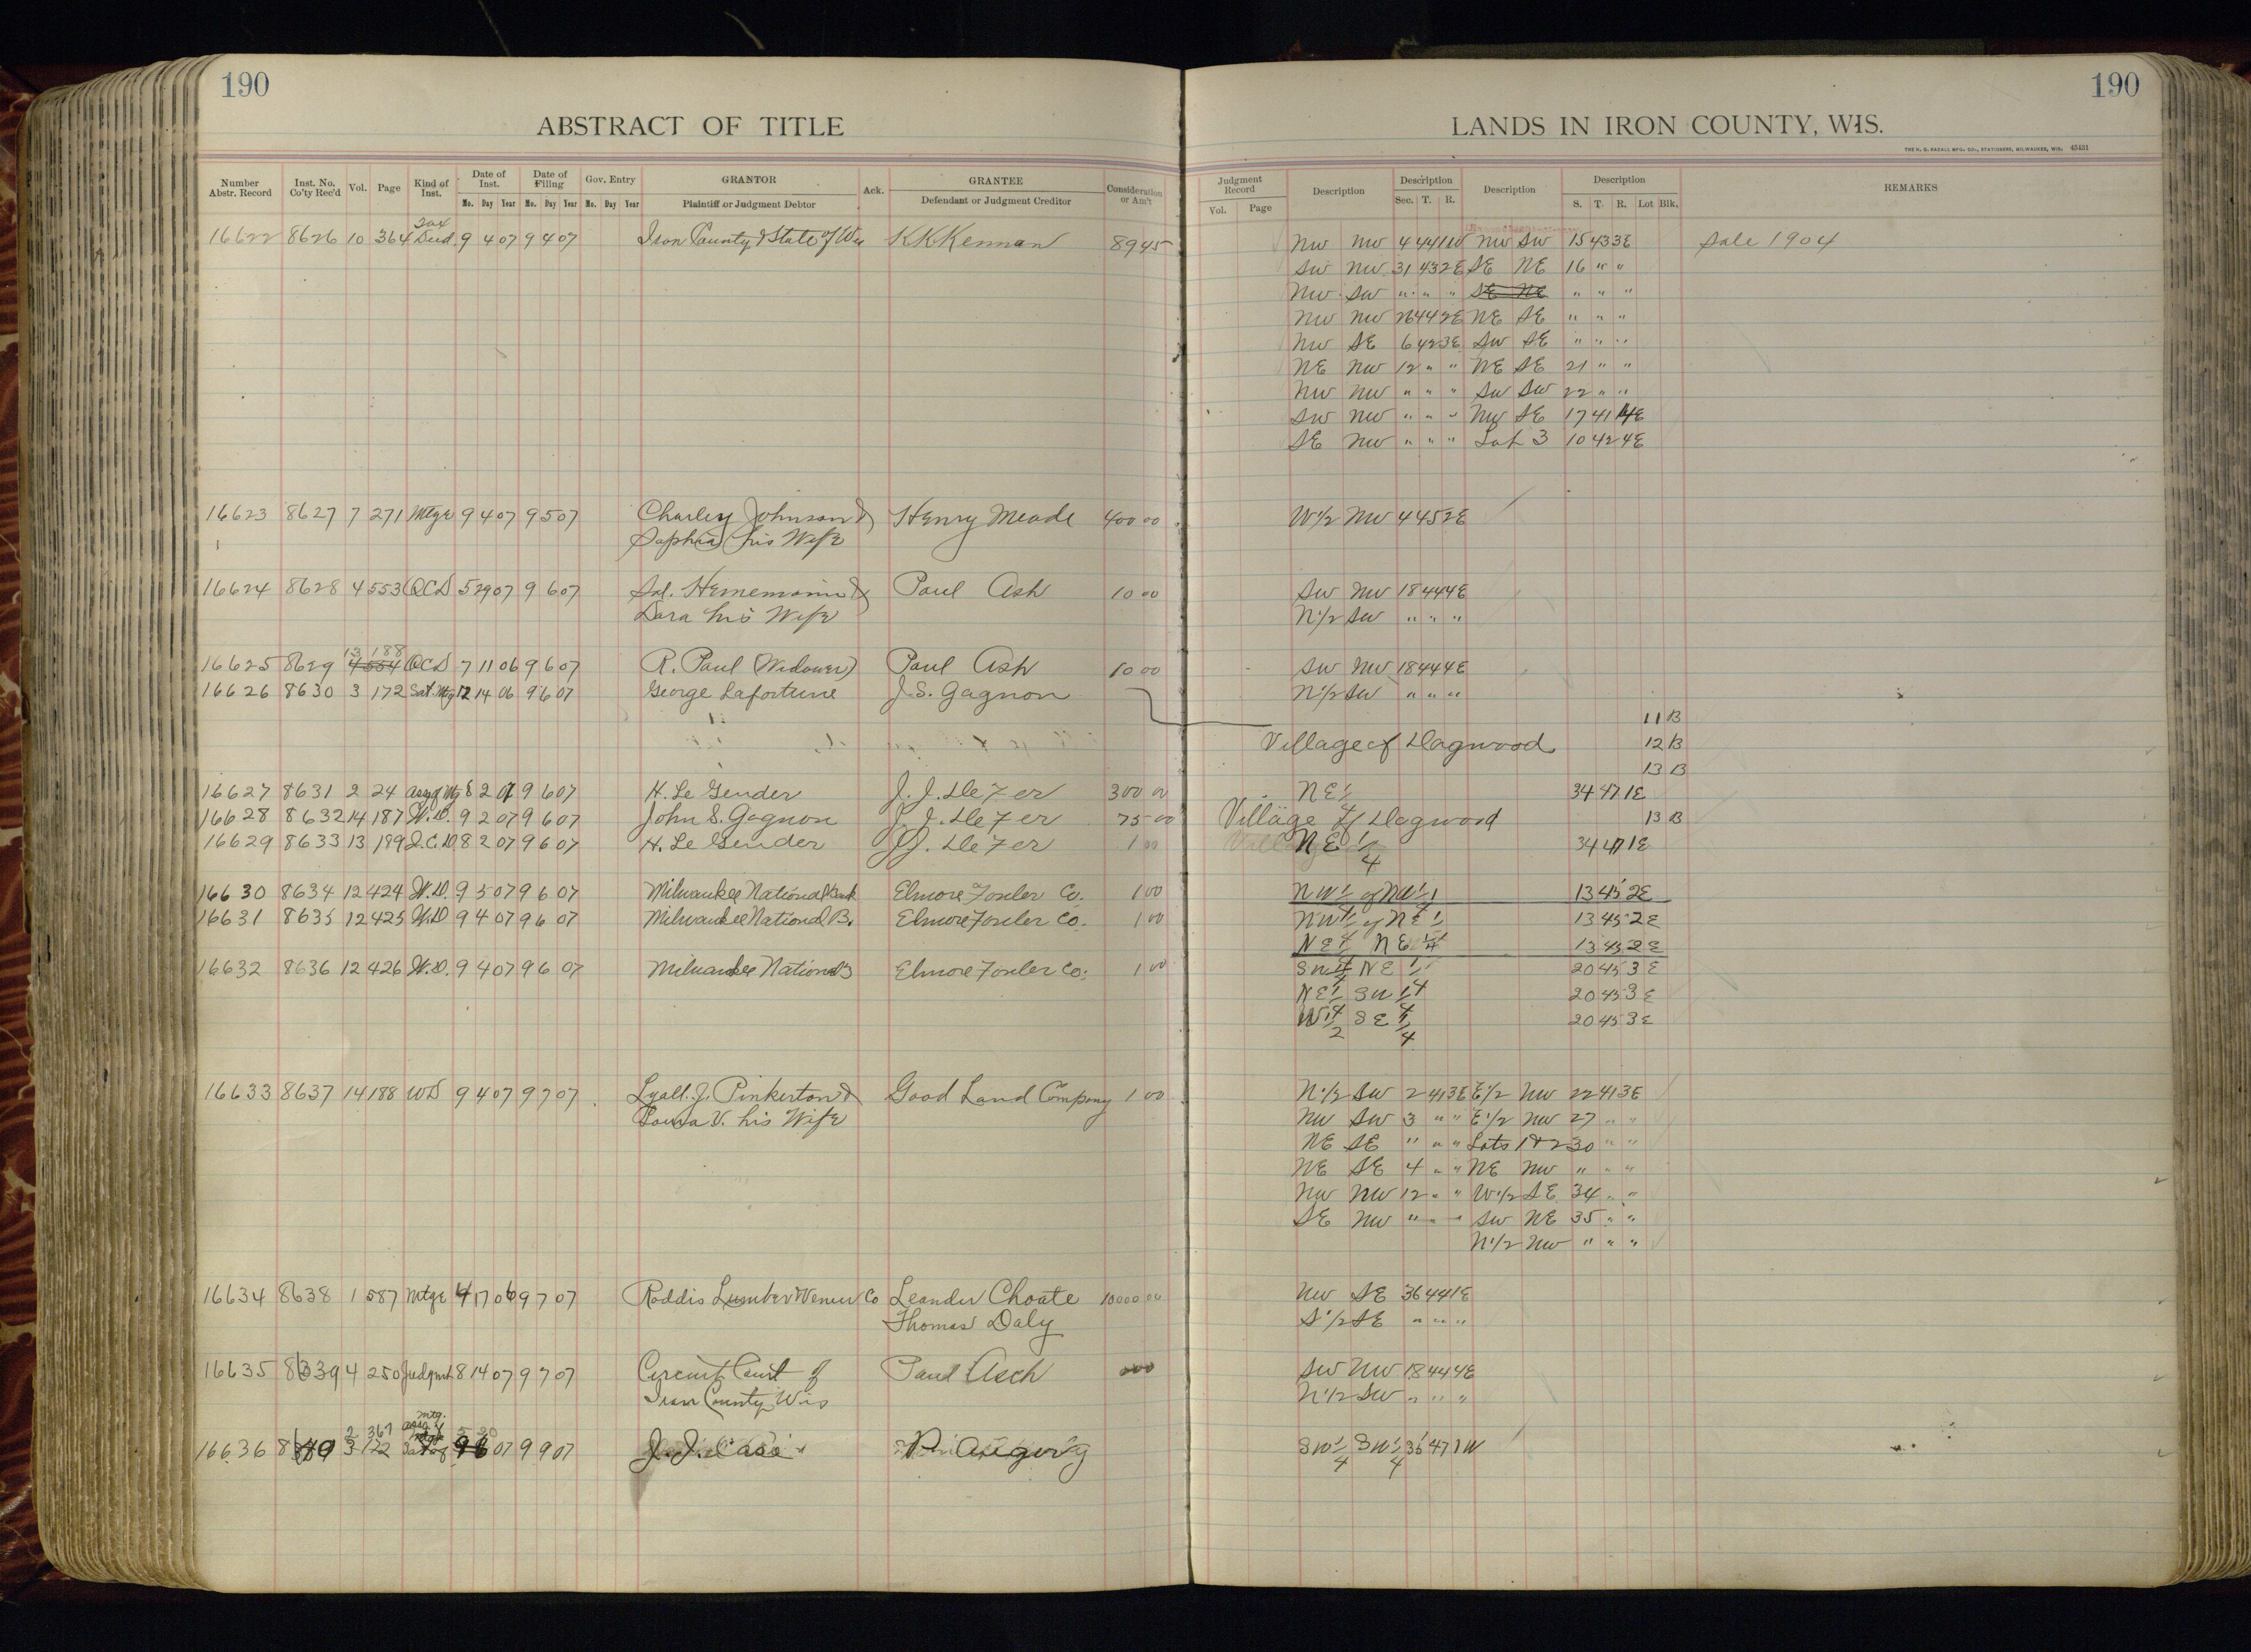 190
ABSTRACT OF TITLE
Number Abstr. Record Inst. No. Co'ty Rec'd Vol. Page Kind of Inst. Date of Inst. Date of Filing Gov. Entry GRANTOR Ack. GRANTEE Consideration or Am't
Mo. Day Year Mo. Day Year Mo. Day Year Plaintiff or Judgment Debtor Defendant or Judgment Creditor
16622 8626 10 364 Tax Deed 9 4 07 9 4 07 Iron County & State of Wis K K Kennan 89 45
16623 8627 7 271 Mtge 9 4 07 9 5 07 Charley Johnson & Henry Meade 400 00
Sophia his Wife
16624 8628 4 553 QCD 5 29 07 9 6 07 Sol. Heinemann & Paul Ash 10 00
Dora his Wife
13 188
16625 8629 4 554 QCD 7 11 06 9 6 07 R. Paul (Widower) Paul Ash 10 00
16626 8630 3 172 Sat. Mtg 12 14 06 9 6 07 George Lafortune J.S. Gagnon
16627 8631 2 24 Assg of Mtg 8 2 07 9 6 07 H. Le Gender J. J. Defer 300 00
16628 8632 14 187 W.D. 9 2 07 9 6 07 John S. Gagnon J. J. Defer 75 00
16629 8633 13 189 Q.C.D. 8 2 07 9 6 07 H. Le Gender J.J. Defer 1 00
16630 8634 12 424 W.D. 9 5 07 9 6 07 Milwaukee National Bank Elmore Fowler Co. 1 00
16631 8635 12 425 W.D 9 4 07 9 6 07 Milwaukee National B. Elmore Fowler Co. 1 00
16632 8636 12 426 W.D. 9 4 07 9 6 07 Milwaukee National B Elmore Fowler Co. 1 00
16633 8637 14 188 WD 9 4 07 9 7 07 Lyall. J. Pinkerton & Good Land Company 1 00
V. his Wife
16634 8638 1 587 Mtge 4 17 06 9 7 07 Roddis Lumber & Veneer Co Leander Choate 10000 00
Thomas Daly
16635 8639 4 250 Judgmt 8 14 07 9 7 07 Circuit Court of Paul Asch
Iron County Wis
2 367 mtg.
16636 07 9 9 07 J. J.
190
LANDS IN IRON COUNTY, WIS.
THE H. G. RAZALL MFG. CO., STATIONERS, MILWAUKEE, WIS. 45431
Judgment Record Description Description Description Description REMARKS
Vol. Page Sec. T. R. S. T. R. Lot Blk.
NW NW 4 44 1W NW SW 15 43 3E Sale 1904
SW NW 31 43 2E SE NE 16 " "
NW SW " " " SE NE " " "
NW NW 26 44 2E NE SE " " "
NW SE 6 42 3E SW SE " " "
NE NW 12 " " NE SE 21 " "
NW NW " " " SW SW 22 " "
SW NW " " " NW SE 17 41 4E
SE NW " " " Lot 3 10 42 4E
W1/2 NW 4 45 2E
SW NW 18 44 4E
N1/2 SW " " "
SW NW 18 44 4E
N1/2 SW " " "
11 B
Village of Dagwood 12 B
13 B
NE 1/4 34 47 1E
Village of Dagwood 13 B
NE 1/4 34 47 1E
NW 1/4 of NW 1/4 13 45 2E
NW 1/4 of NE 1/4 13 45 2E
NE 1/4 NE 1/4 13 45 2E
SW 1/4 NE 1/4 20 45 3E
NE 1/4 SW 1/4 20 45 3E
W 1/2 SE 1/4 20 45 3E
N1/2 SW 2 41 3E E1/2 NW 22 41 3E
NW SW 3 " " E1/2 NW 27 " "
NE SE " " " Lots 1 & 2 30 " "
NE SE 4 " " NE NW " " "
NW NW 12 " " W1/2 SE 34 " "
SE NW " " " SW NE 35 " "
N1/2 NW " " "
NW SE 36 44 1E
S1/2 SE " " "
SW NW 18 44 4E
N1/2 SW " " "
SW 1/4 SW 1/4 35 47 1W